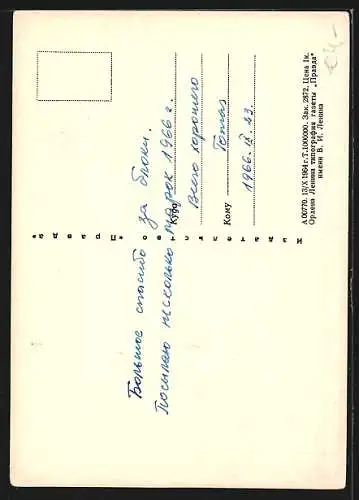 Большое спасибо за блоки.
Посылаю несколько марок 1966 г.
Всего хорошего
Tomas
1966.IX.23.
Куда
Кому
Издательство „Правда“
А 00770. 13/X 1964 г. Т. 1000000. Зак. 2872. Цена 1к.
Ордена Ленина типография газеты „Правда“
имени В. И. Ленина
€4,-